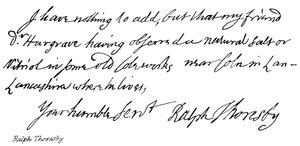 I have nothing to add, but that my friend
Dr Hargrave having observed a natural Salt or
Vitriol in some old Coleworks near Coln in Lan-
Lancashire where he lives,
Your humble Servt
Ralph Thoresby
Ralph Thoresby